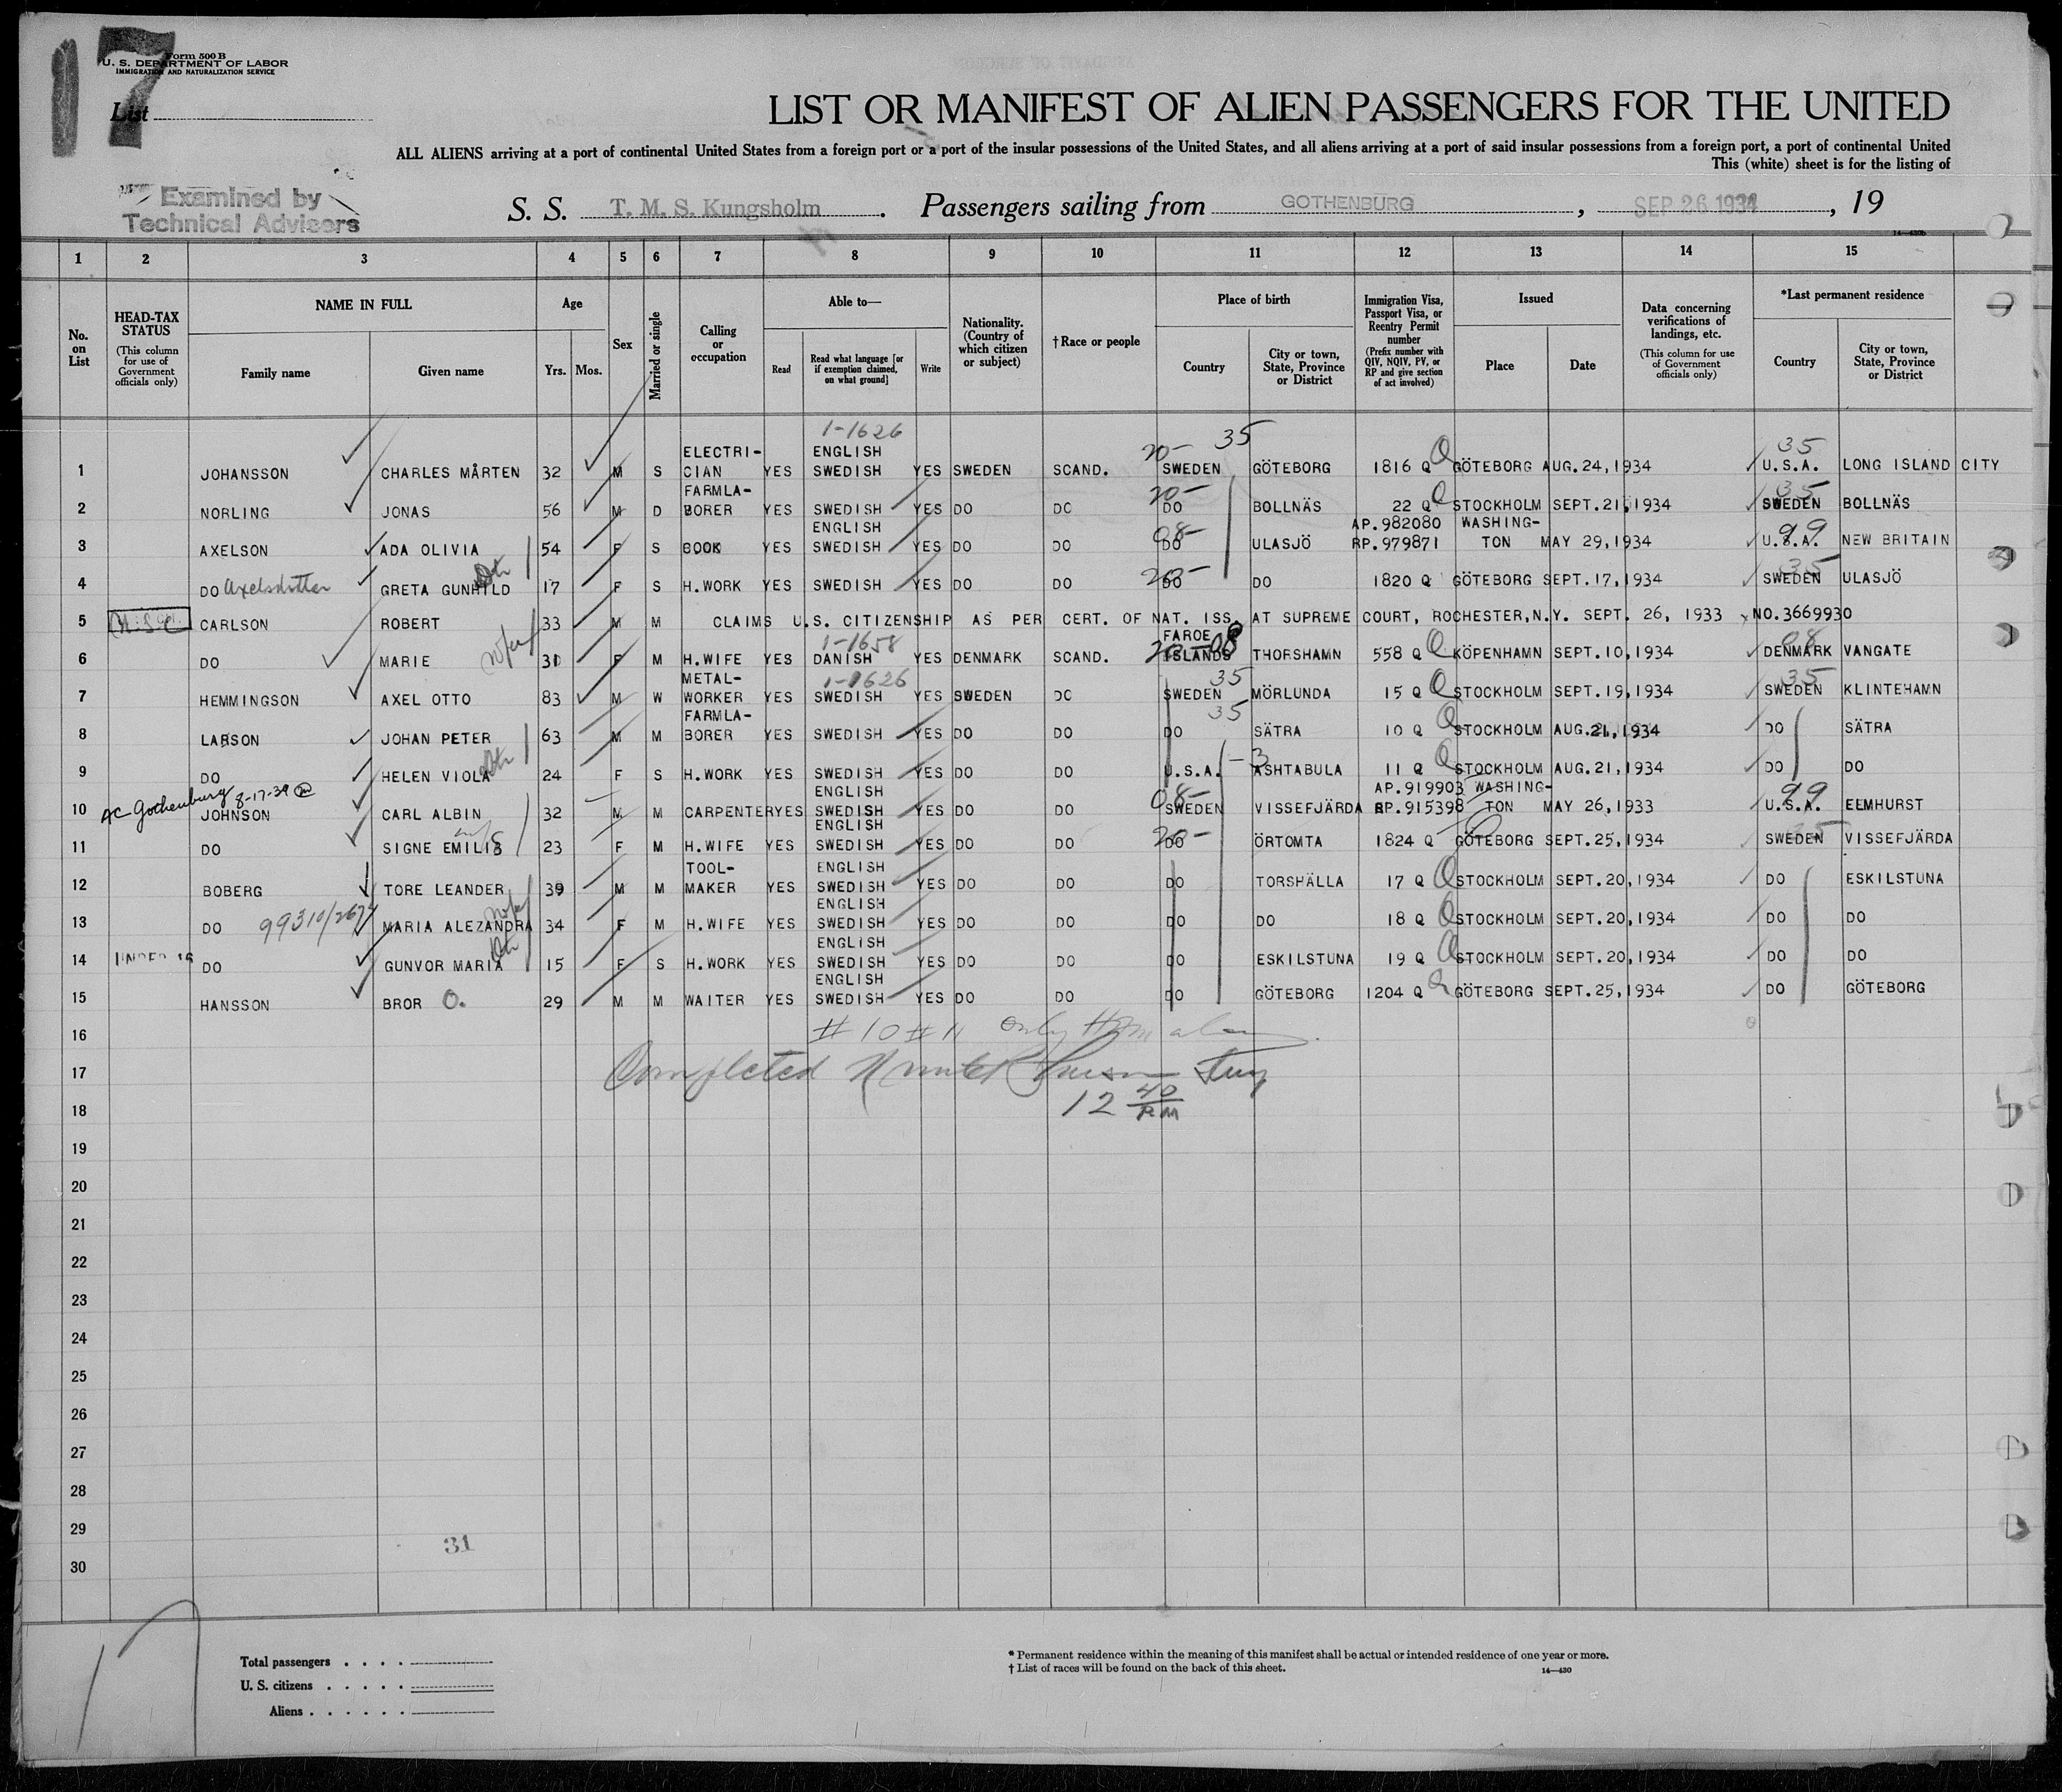 17
Form 500 B
U. S. DEPARTMENT OF LABOR
IMMIGRATION AND NATURALIZATION SERVICE
List
LIST OR MANIFEST OF ALIEN PASSENGERS FOR THE UNITED
ALL ALIENS arriving at a port of continental United States from a foreign port or a port of the insular possessions of the United States, and all aliens arriving at a port of said insular possessions from a foreign port, a port of continental United
This (white) sheet is for the listing of
Examined by
Technical Advisors
S. S. T. M. S. Kungsholm. Passengers sailing from GOTHENBURG, SEP 26 1934, 19
14—430b
1 2 3 4 5 6 7 8 9 10 11 12 13 14 15
No. on List
HEAD-TAX STATUS (This column for use of Government officials only)
NAME IN FULL Family name Given name
Age Yrs. Mos.
Sex
Married or single
Calling or occupation
Able to— Read Read what language [or if exemption claimed, on what ground] Write
Nationality. (Country of which citizen or subject)
† Race or people
Place of birth Country City or town, State, Province or District
Immigration Visa, Passport Visa, or Reentry Permit number (Prefix number with QIV, NQIV, PV, or RP and give section of act involved)
Issued Place Date
Data concerning verifications of landings, etc. (This column for use of Government officials only)
*Last permanent residence Country City or town, State, Province or District
1-1626 20- 35 35
1 JOHANSSON CHARLES MÅRTEN 32 M S ELECTRI-CIAN YES ENGLISH SWEDISH YES SWEDEN SCAND. SWEDEN GÖTEBORG 1816 Q GÖTEBORG AUG.24,1934 U.S.A. LONG ISLAND CITY
20- 35
2 NORLING JONAS 56 M D FARMLA-BORER YES SWEDISH YES DO DO DO BOLLNÄS 22 Q STOCKHOLM SEPT.21,1934 SWEDEN BOLLNÄS
08- 99
3 AXELSON ADA OLIVIA 54 F S COOK YES ENGLISH SWEDISH YES DO DO DO ULASJÖ AP.982080 RP.979871 WASHING-TON MAY 29,1934 U.S.A. NEW BRITAIN
20- 35
4 DO Axelsdotter GRETA GUNHILD Dtr 17 F S H.WORK YES SWEDISH YES DO DO DO DO 1820 Q GÖTEBORG SEPT.17,1934 SWEDEN ULASJÖ
5 U.S.C. CARLSON ROBERT 33 M M CLAIMS U.S. CITIZENSHIP AS PER CERT. OF NAT. ISS. AT SUPREME COURT, ROCHESTER,N.Y. SEPT. 26, 1933 NO.3669930
1-1658 20- 08 08
6 DO MARIE 31 F M H.WIFE YES DANISH YES DENMARK SCAND. FAROE ISLANDS THORSHAMN 558 Q KÖPENHAMN SEPT.10,1934 DENMARK VANGATE
1-1626 35 35
7 HEMMINGSON AXEL OTTO 83 M W METAL-WORKER YES SWEDISH YES SWEDEN DO SWEDEN MÖRLUNDA 15 Q STOCKHOLM SEPT.19,1934 SWEDEN KLINTEHAMN
35
8 LARSON JOHAN PETER 63 M M FARMLA-BORER YES SWEDISH YES DO DO DO SÄTRA 10 Q STOCKHOLM AUG.21,1934 DO SÄTRA
9 DO HELEN VIOLA Dtr 24 F S H.WORK YES SWEDISH YES DO DO U.S.A. -3 ASHTABULA 11 Q STOCKHOLM AUG.21,1934 DO DO
AC Gothenburg 8-17-39 08- 99
10 JOHNSON CARL ALBIN 32 M M CARPENTER YES ENGLISH SWEDISH YES DO DO SWEDEN VISSEFJÄRDA AP.919903 RP.915398 WASHING-TON MAY 26,1933 U.S.A. ELMHURST
20- 35
11 DO SIGNE EMILIE 23 F M H.WIFE YES ENGLISH SWEDISH YES DO DO DO ÖRTOMTA 1824 Q GÖTEBORG SEPT.25,1934 SWEDEN VISSEFJÄRDA
12 BOBERG TORE LEANDER 39 M M TOOL-MAKER YES ENGLISH SWEDISH YES DO DO DO TORSHÄLLA 17 Q STOCKHOLM SEPT.20,1934 DO ESKILSTUNA
13 DO 99310/2674 MARIA ALEZANDRA 34 F M H.WIFE YES ENGLISH SWEDISH YES DO DO DO DO 18 Q STOCKHOLM SEPT.20,1934 DO DO
14 UNDER 16 DO GUNVOR MARIA Dtr 15 F S H.WORK YES ENGLISH SWEDISH YES DO DO DO ESKILSTUNA 19 Q STOCKHOLM SEPT.20,1934 DO DO
15 HANSSON BROR O. 29 M M WAITER YES ENGLISH SWEDISH YES DO DO DO GÖTEBORG 1204 Q GÖTEBORG SEPT.25,1934 DO GÖTEBORG
16 #10 #11 only
17 Completed
18 12 40 PM
19
20
21
22
23
24
25
26
27
28
29
31
30
17
Total passengers . . . .
U. S. citizens . . . . .
Aliens . . . . . .
* Permanent residence within the meaning of this manifest shall be actual or intended residence of one year or more.
† List of races will be found on the back of this sheet.
14—430